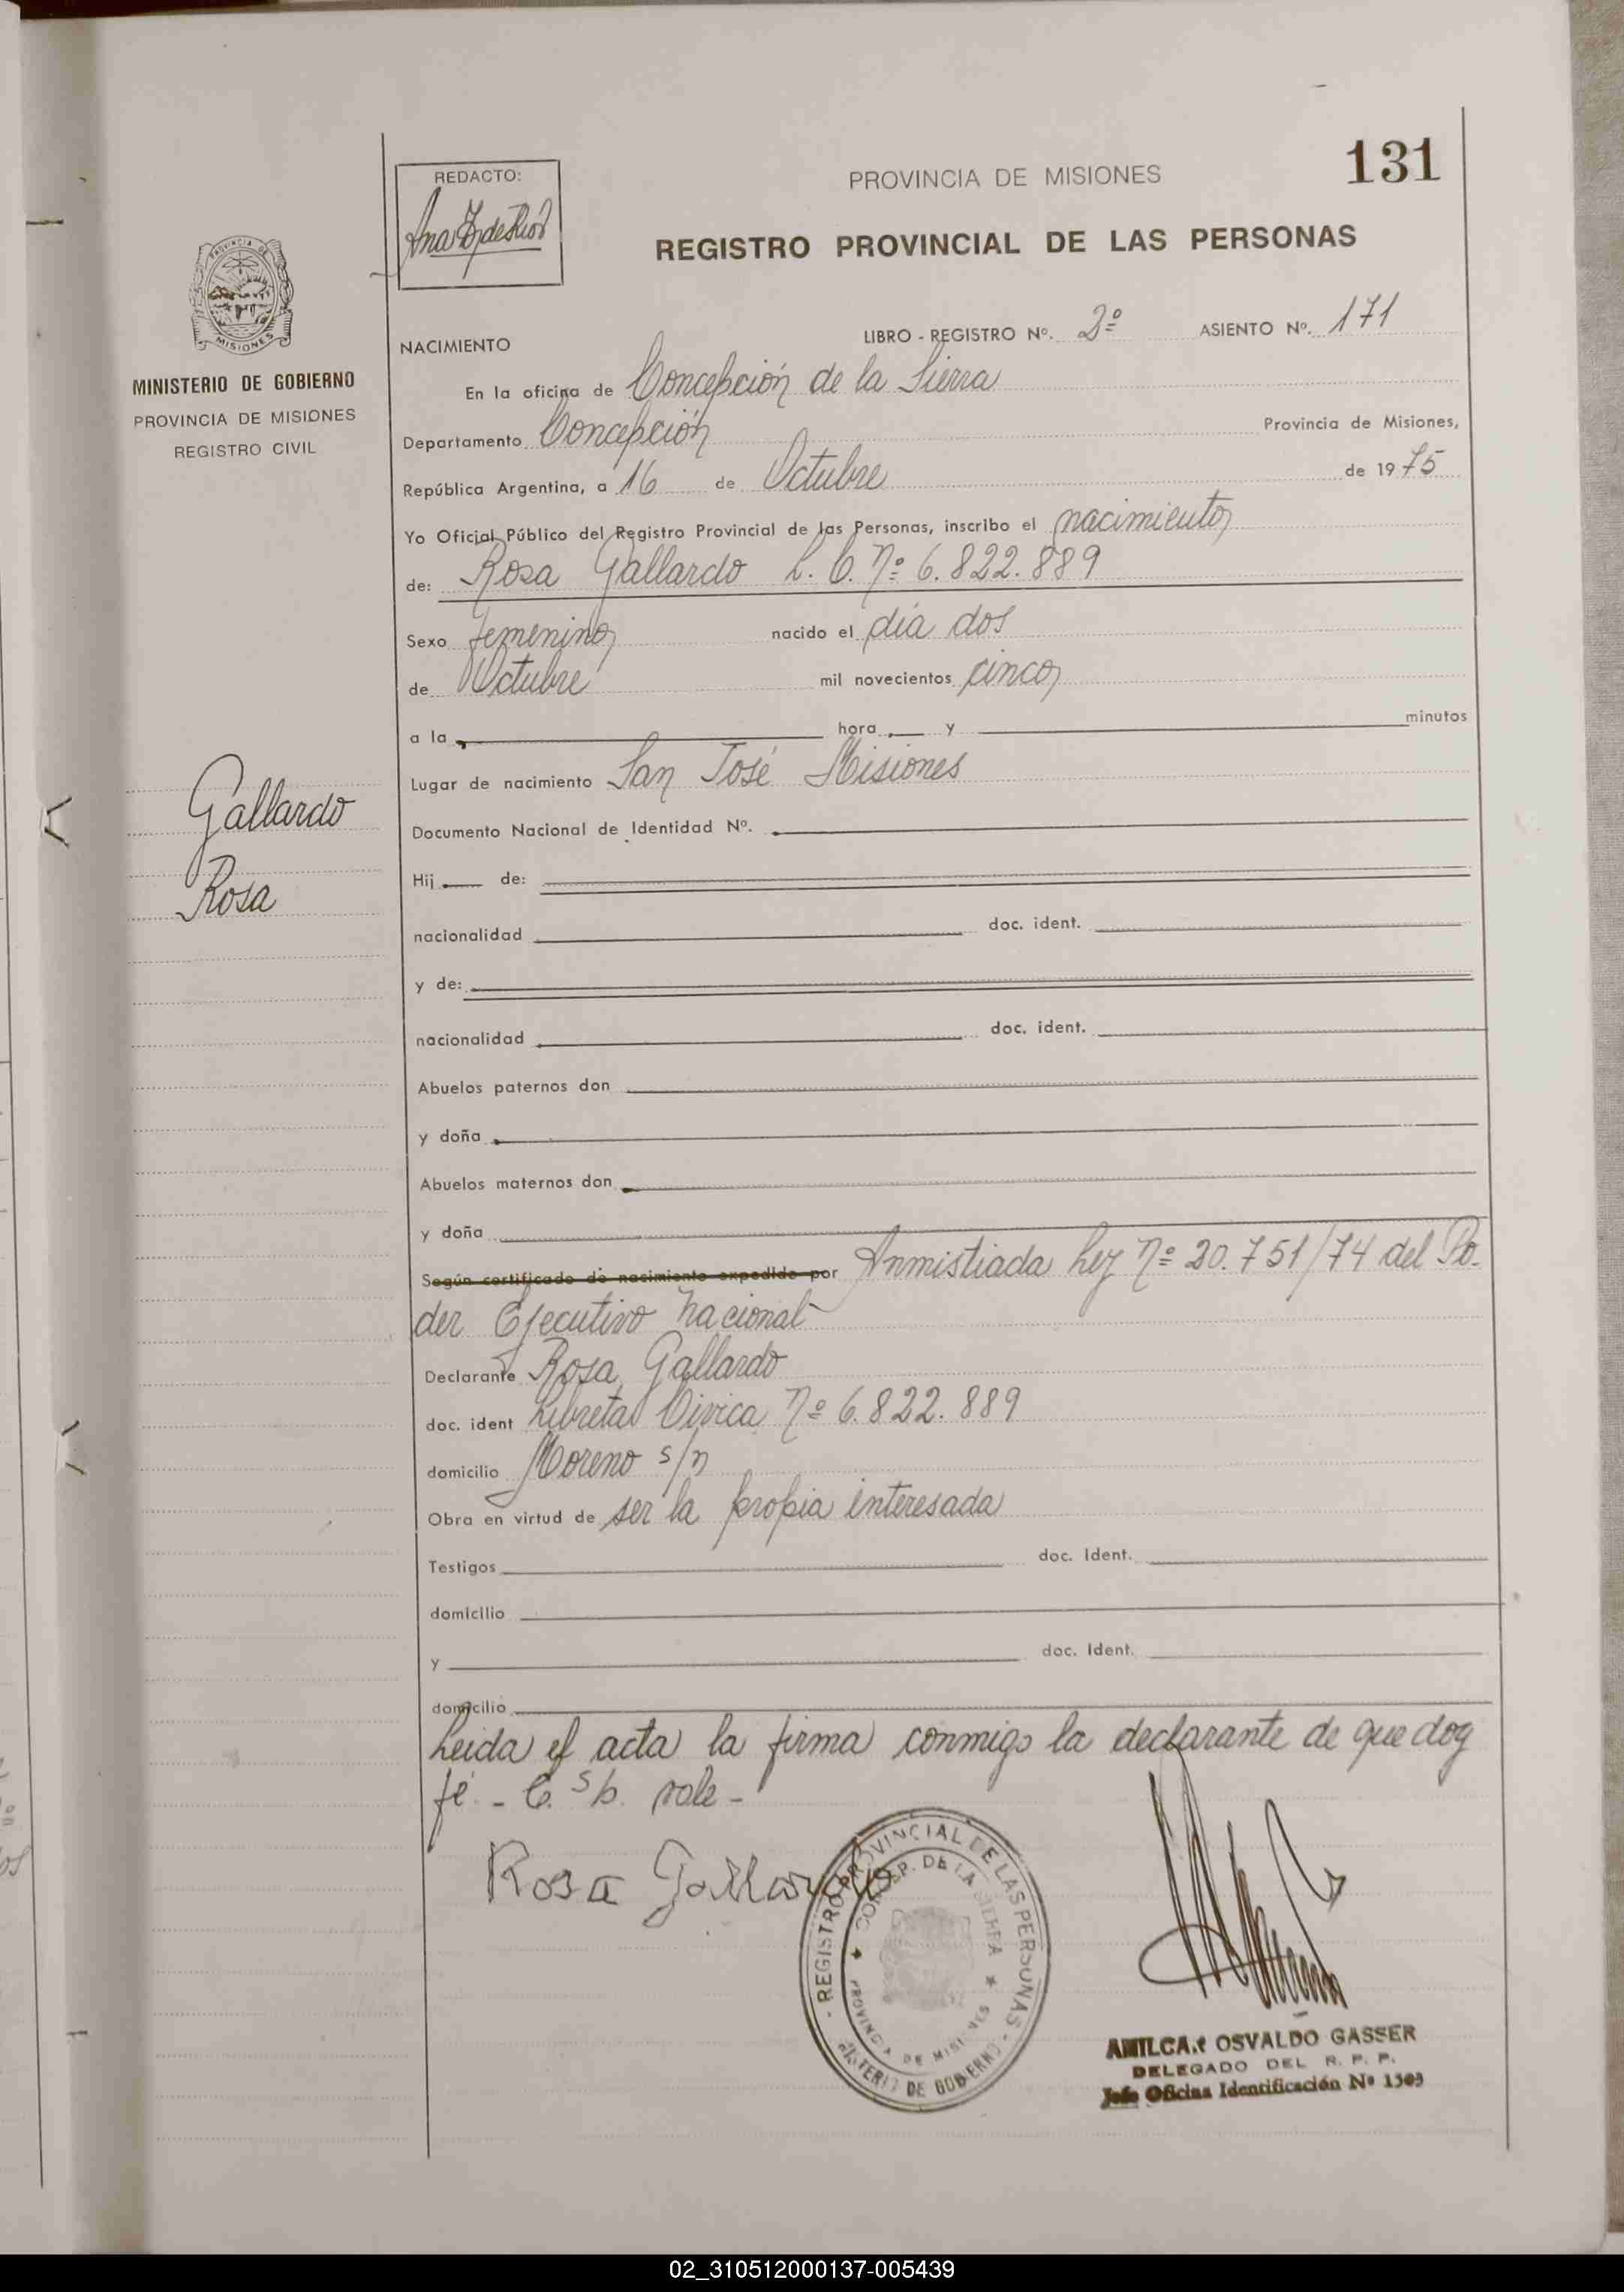 131
REDACTO:
PROVINCIA DE MISIONES
REGISTRO PROVINCIAL DE LAS PERSONAS
MISIONES
MINISTERIO DE GOBIERNO
PROVINCIA DE MISIONES
REGISTRO CIVIL
NACIMIENTO LIBRO - REGISTRO Nº. 2º ASIENTO Nº. 171
En la oficina de Concepción de la Sierra
Departamento Concepción Provincia de Misiones,
República Argentina, a 16 de Octubre de 1975
Yo Oficial Público del Registro Provincial de las Personas, inscribo el nacimiento
de: Rosa Gallardo L. C. Nº 6.822.889
Sexo femenino nacido el día dos
de Octubre mil novecientos cinco
a la hora y minutos
Lugar de nacimiento San José Misiones
Gallardo
Rosa
Documento Nacional de Identidad Nº.
Hij de:
nacionalidad doc. ident.
y de:
nacionalidad doc. ident.
Abuelos paternos don
y doña
Abuelos maternos don
y doña
Según certificado de nacimiento expedido por Anmistiada Ley Nº 20.751/74 del Po-
der Ejecutivo Nacional
Declarante Rosa Gallardo
doc. ident Libreta Civica Nº 6.822.889
domicilio Moreno s/n
Obra en virtud de ser la propia interesada
Testigos doc. Ident.
domicilio
y doc. Ident.
domicilio
Leida el acta la firma conmigo la declarante de que doy
fé. - C. s/b. vale -
Rosa Gallardo
REGISTRO PROVINCIAL DE LAS PERSONAS
CONCEP. DE LA SIERRA
PROVINCIA DE MISIONES
MINISTERIO DE GOBIERNO
AMILCAR OSVALDO GASSER
DELEGADO DEL R. P. P.
Jefe Oficina Identificación Nº 1503
02_310512000137-005439